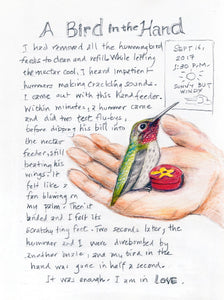 A Bird in the Hand
I had removed all the hummingbird
feeders to clean and refill. While letting
the nectar cool, I heard impatient
hummers making crackling sounds.
I came out with this handfeeder.
Within minutes, a hummer came
and did two test fly-bys,
before dipping his bill into
the nectar
feeder, still
beating his
wings. It
felt like a
fan blowing on
my palm. Then it
landed and I felt its
scratchy tiny feet. Two seconds later, the
hummer and I were divebombed by
another male, and my bird in the
hand was gone in half a second.
It was enough. I am in LOVE.
SEPT 16,
2017
1:30 P.M.
SUNNY BUT
WINDY